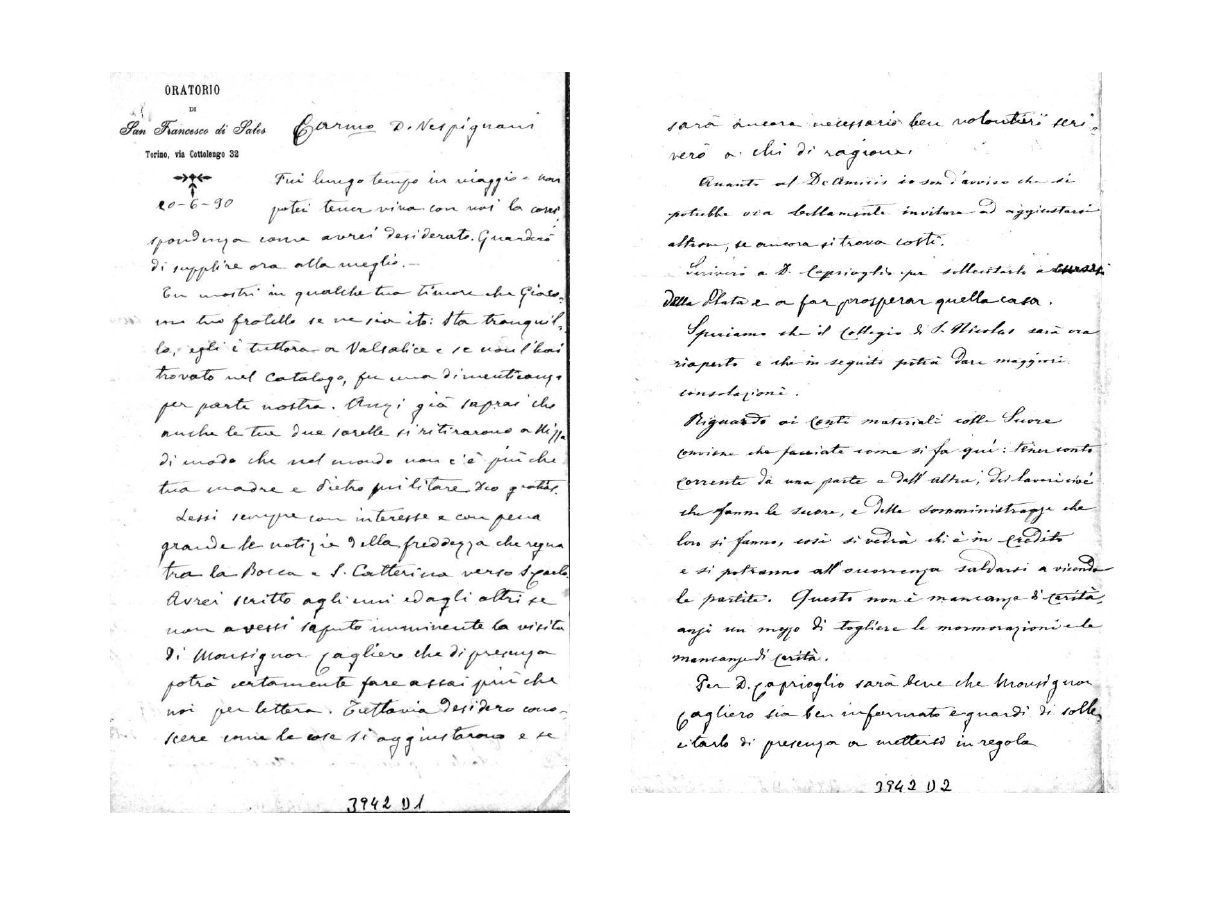 ORATORIO
DI
San Francesco di Sales
Torino, via Cottolengo 32
Carmo D. Vespignani
20-6-90
Fui lungo tempo in viaggio e non
potei tener viva con voi la corri
spondenza come avrei desiderato. Guarderò
di supplire ora alla meglio.-
Tu mostri in qualche tua timore che Giaco-
mo tuo fratello se ne sia ito: Sta tranquil-
lo, egli è tuttora a Valsalice e se non l'hai
trovato nel Catalogo, fu una dimenticanza
per parte nostra. Anzi già saprai che
anche le tue due sorelle si ritirarono a Nizza
di modo che nel mondo non c'è più che
tua madre e Pietro militare. Deo gratias.
Lessi sempre con interesse e con pena
grande le notizie della freddezza che regna
tra la Bocca e S. Catterina verso S. Carlo.
Avrei scritto agli uni ed agli altri se
non avessi saputo imminente la visita
di Monsignor Cagliero che di presenza
potrà certamente fare assai più che
noi per lettera. Tuttavia desidero cono-
scere come le cose si aggiustarono e se
3942 D1
sarà ancora necessario ben volontieri scri-
verò a chi di ragione.
Quanto al DeAmicis io son d'avviso che si
potrebbe bellamente invitare ad aggiustarsi
altrove, se ancora si trova costì.
Scriverò a D. Caprioglio per sollecitarlo a
della Plata e a far prosperar quella casa.
Speriamo che il Collegio di S. Nicolas sarà ora
riaperto e che in seguito potrà dare maggiori
consolazioni.
Riguardo ai conti materiali colle Suore
conviene che facciate come si fa qui: tener conto
corrente da una parte e dall'altra, dei lavori cioè
che fanno le suore, e delle somministrazze che
loro si fanno, così si vedrà chi è in credito
e si potranno all'occorrenza saldarsi a vicenda
le partite. Questo non è mancanza di carità,
anzi un mezzo di togliere le mormorazioni e le
mancanze di carità.
Per D. Caprioglio sarà bene che Monsignor
Cagliero sia ben informato e guardi di solle
citarlo di presenza a mettersi in regola
3942 D2